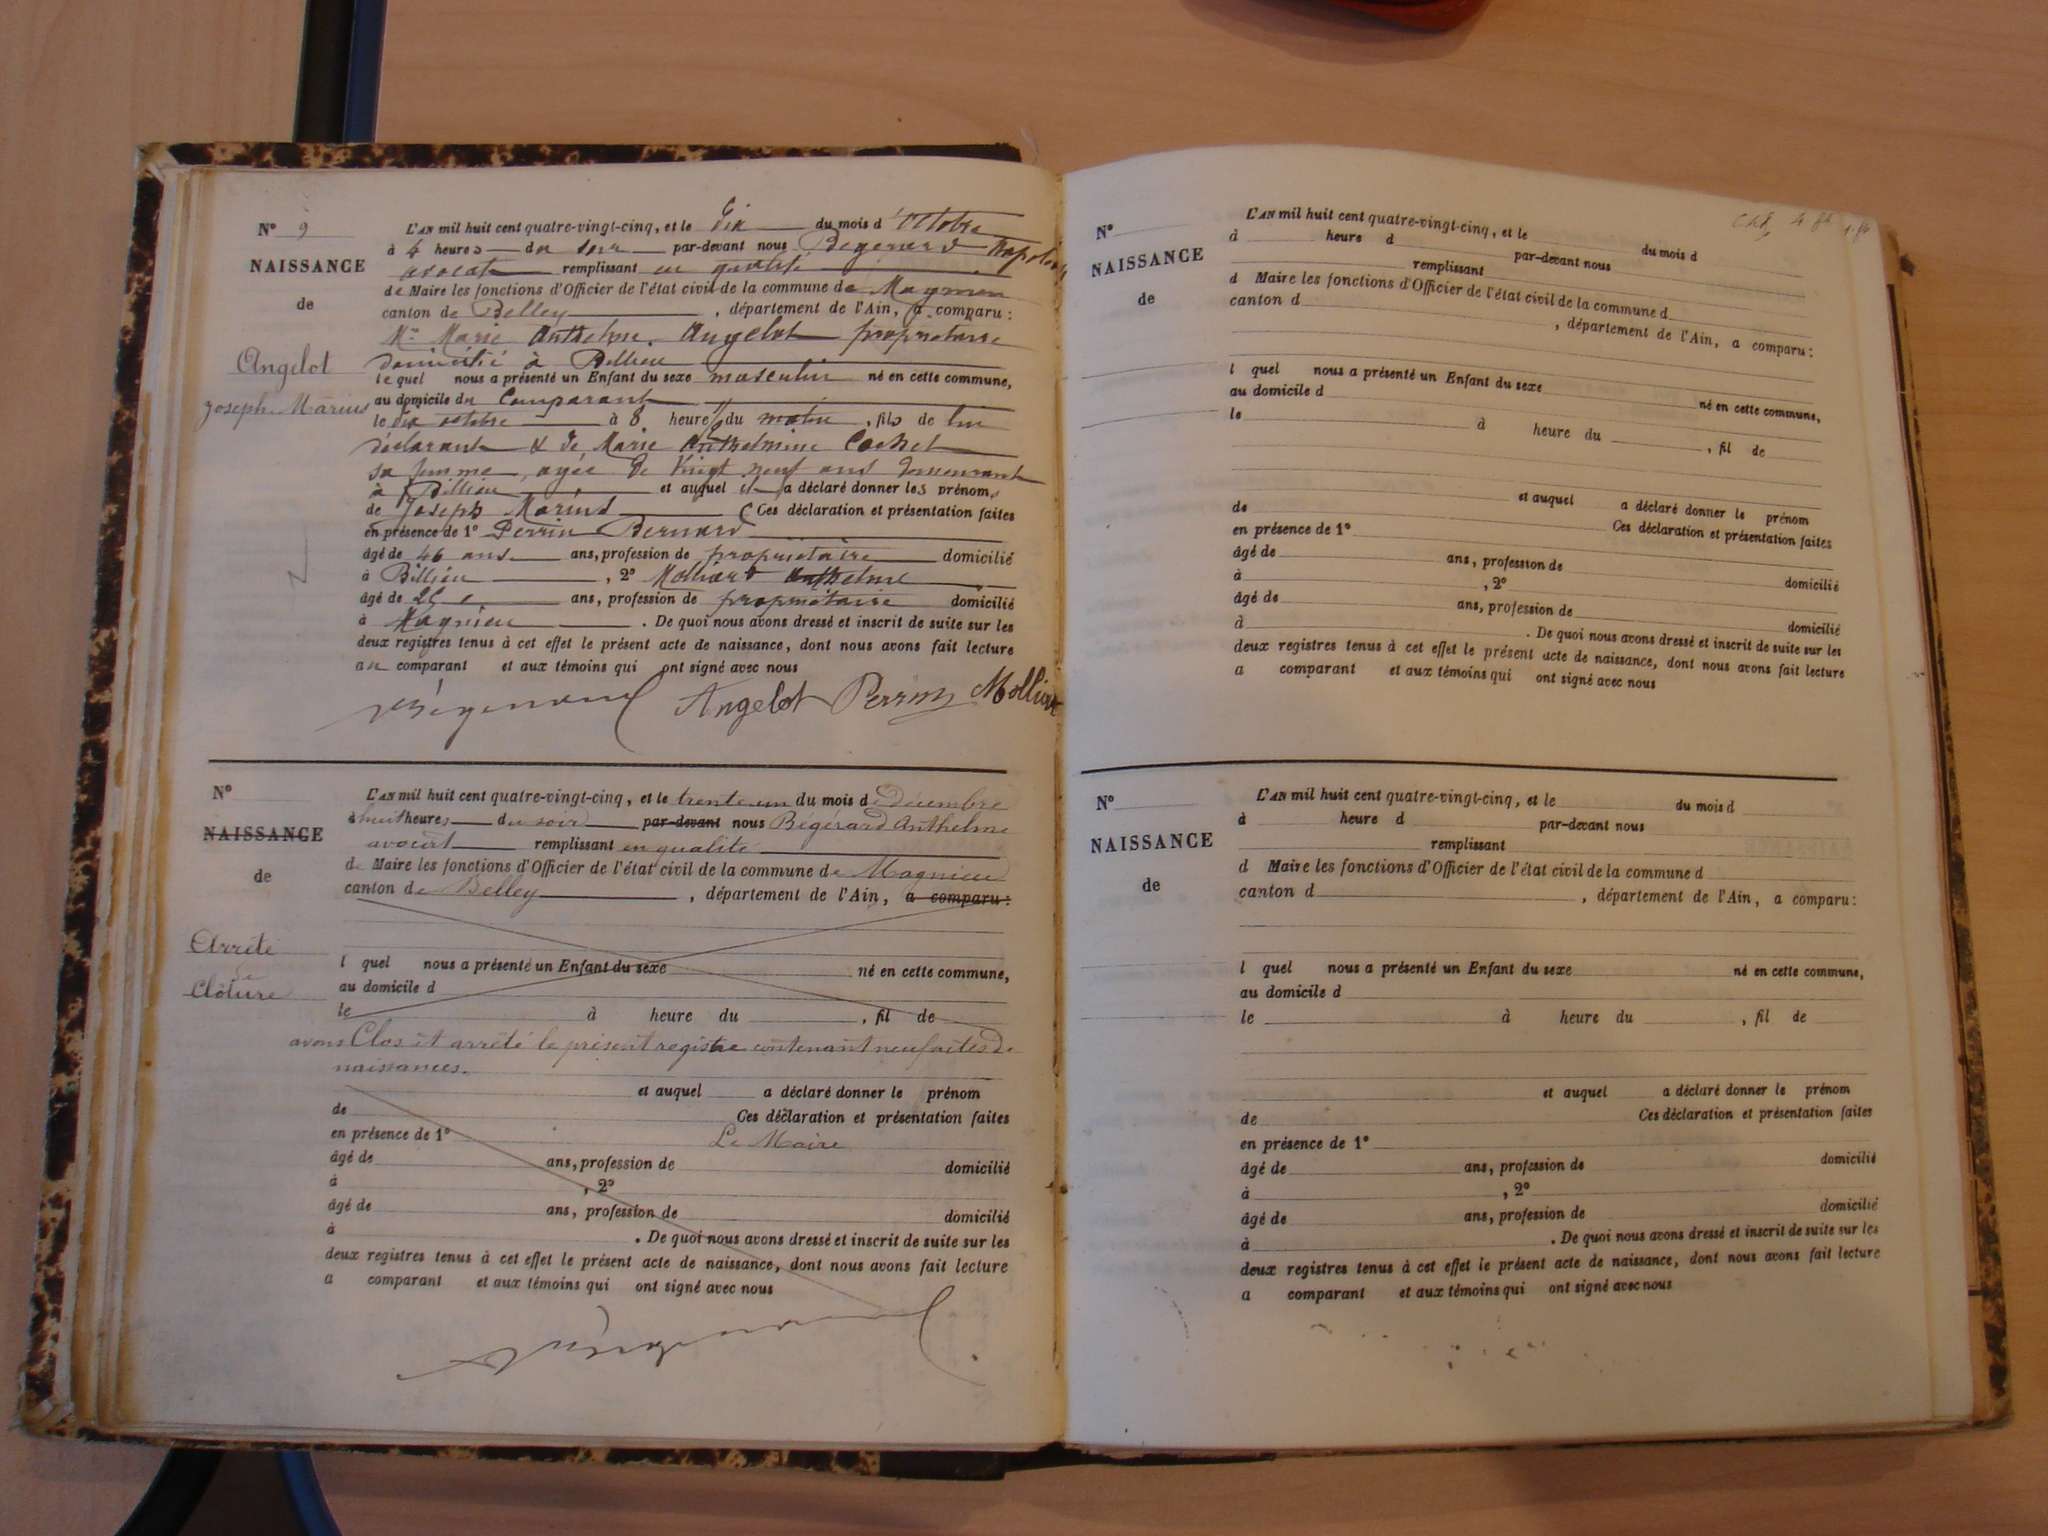 N° 9
NAISSANCE
de
Angelot
Joseph Marius
L'AN mil huit cent quatre-vingt-cinq, et le dix du mois d'octobre
à 4 heures du soir par-devant nous Bégérard
avocat remplissant en qualité
de Maire les fonctions d'Officier de l'état civil de la commune de Magnieu
canton de Belley, département de l'Ain, a comparu :
Mr Marie Anthelme Angelot propriétaire
domicilié à Billieu
lequel nous a présenté un Enfant du sexe masculin né en cette commune,
au domicile du Comparant
le dix octobre à 8 heures du matin, fils de lui
déclarant & de Marie Anthelmine Cochet
sa femme, agée de vingt neuf ans demeurant
à Billieu et auquel il a déclaré donner les prénoms
de Joseph Marius Ces déclaration et présentation faites
en présence de 1° Perrin Bernard
âgé de 46 ans ans, profession de propriétaire domicilié
à Billieu, 2° Molliard Anthelme
âgé de 25 ans, profession de propriétaire domicilié
à Magnieu. De quoi nous avons dressé et inscrit de suite sur les
deux registres tenus à cet effet le présent acte de naissance, dont nous avons fait lecture
au comparant et aux témoins qui ont signé avec nous
Bégérard Angelot Perrin Molliard
N°
NAISSANCE
de
Arrêté
de
Clôture
L'AN mil huit cent quatre-vingt-cinq, et le trente-un du mois de Décembre
à huit heures du soir par-devant nous Bégérard Anthelme
avocat remplissant en qualité
de Maire les fonctions d'Officier de l'état civil de la commune de Magnieu
canton de Belley, département de l'Ain, a comparu :
l quel nous a présenté un Enfant du sexe né en cette commune,
au domicile d
le à heure du , fil de
avons Clos et arrêté le présent registre contenant neuf actes de
naissances.
et auquel a déclaré donner le prénom
de Ces déclaration et présentation faites
en présence de 1° Le Maire
âgé de ans, profession de domicilié
à , 2°
âgé de ans, profession de domicilié
à . De quoi nous avons dressé et inscrit de suite sur les
deux registres tenus à cet effet le présent acte de naissance, dont nous avons fait lecture
a comparant et aux témoins qui ont signé avec nous
Bégérard
N°
NAISSANCE
de
L'AN mil huit cent quatre-vingt-cinq, et le du mois d
à heure d par-devant nous
remplissant
d Maire les fonctions d'Officier de l'état civil de la commune d
canton d , département de l'Ain, a comparu :
l quel nous a présenté un Enfant du sexe né en cette commune,
au domicile d
le à heure du , fil de
et auquel a déclaré donner le prénom
de Ces déclaration et présentation faites
en présence de 1°
âgé de ans, profession de domicilié
à , 2°
âgé de ans, profession de domicilié
à . De quoi nous avons dressé et inscrit de suite sur les
deux registres tenus à cet effet le présent acte de naissance, dont nous avons fait lecture
a comparant et aux témoins qui ont signé avec nous
N°
NAISSANCE
de
L'AN mil huit cent quatre-vingt-cinq, et le du mois d
à heure d par-devant nous
remplissant
d Maire les fonctions d'Officier de l'état civil de la commune d
canton d , département de l'Ain, a comparu :
l quel nous a présenté un Enfant du sexe né en cette commune,
au domicile d
le à heure du , fil de
et auquel a déclaré donner le prénom
de Ces déclaration et présentation faites
en présence de 1°
âgé de ans, profession de domicilié
à , 2°
âgé de ans, profession de domicilié
à . De quoi nous avons dressé et inscrit de suite sur les
deux registres tenus à cet effet le présent acte de naissance, dont nous avons fait lecture
a comparant et aux témoins qui ont signé avec nous